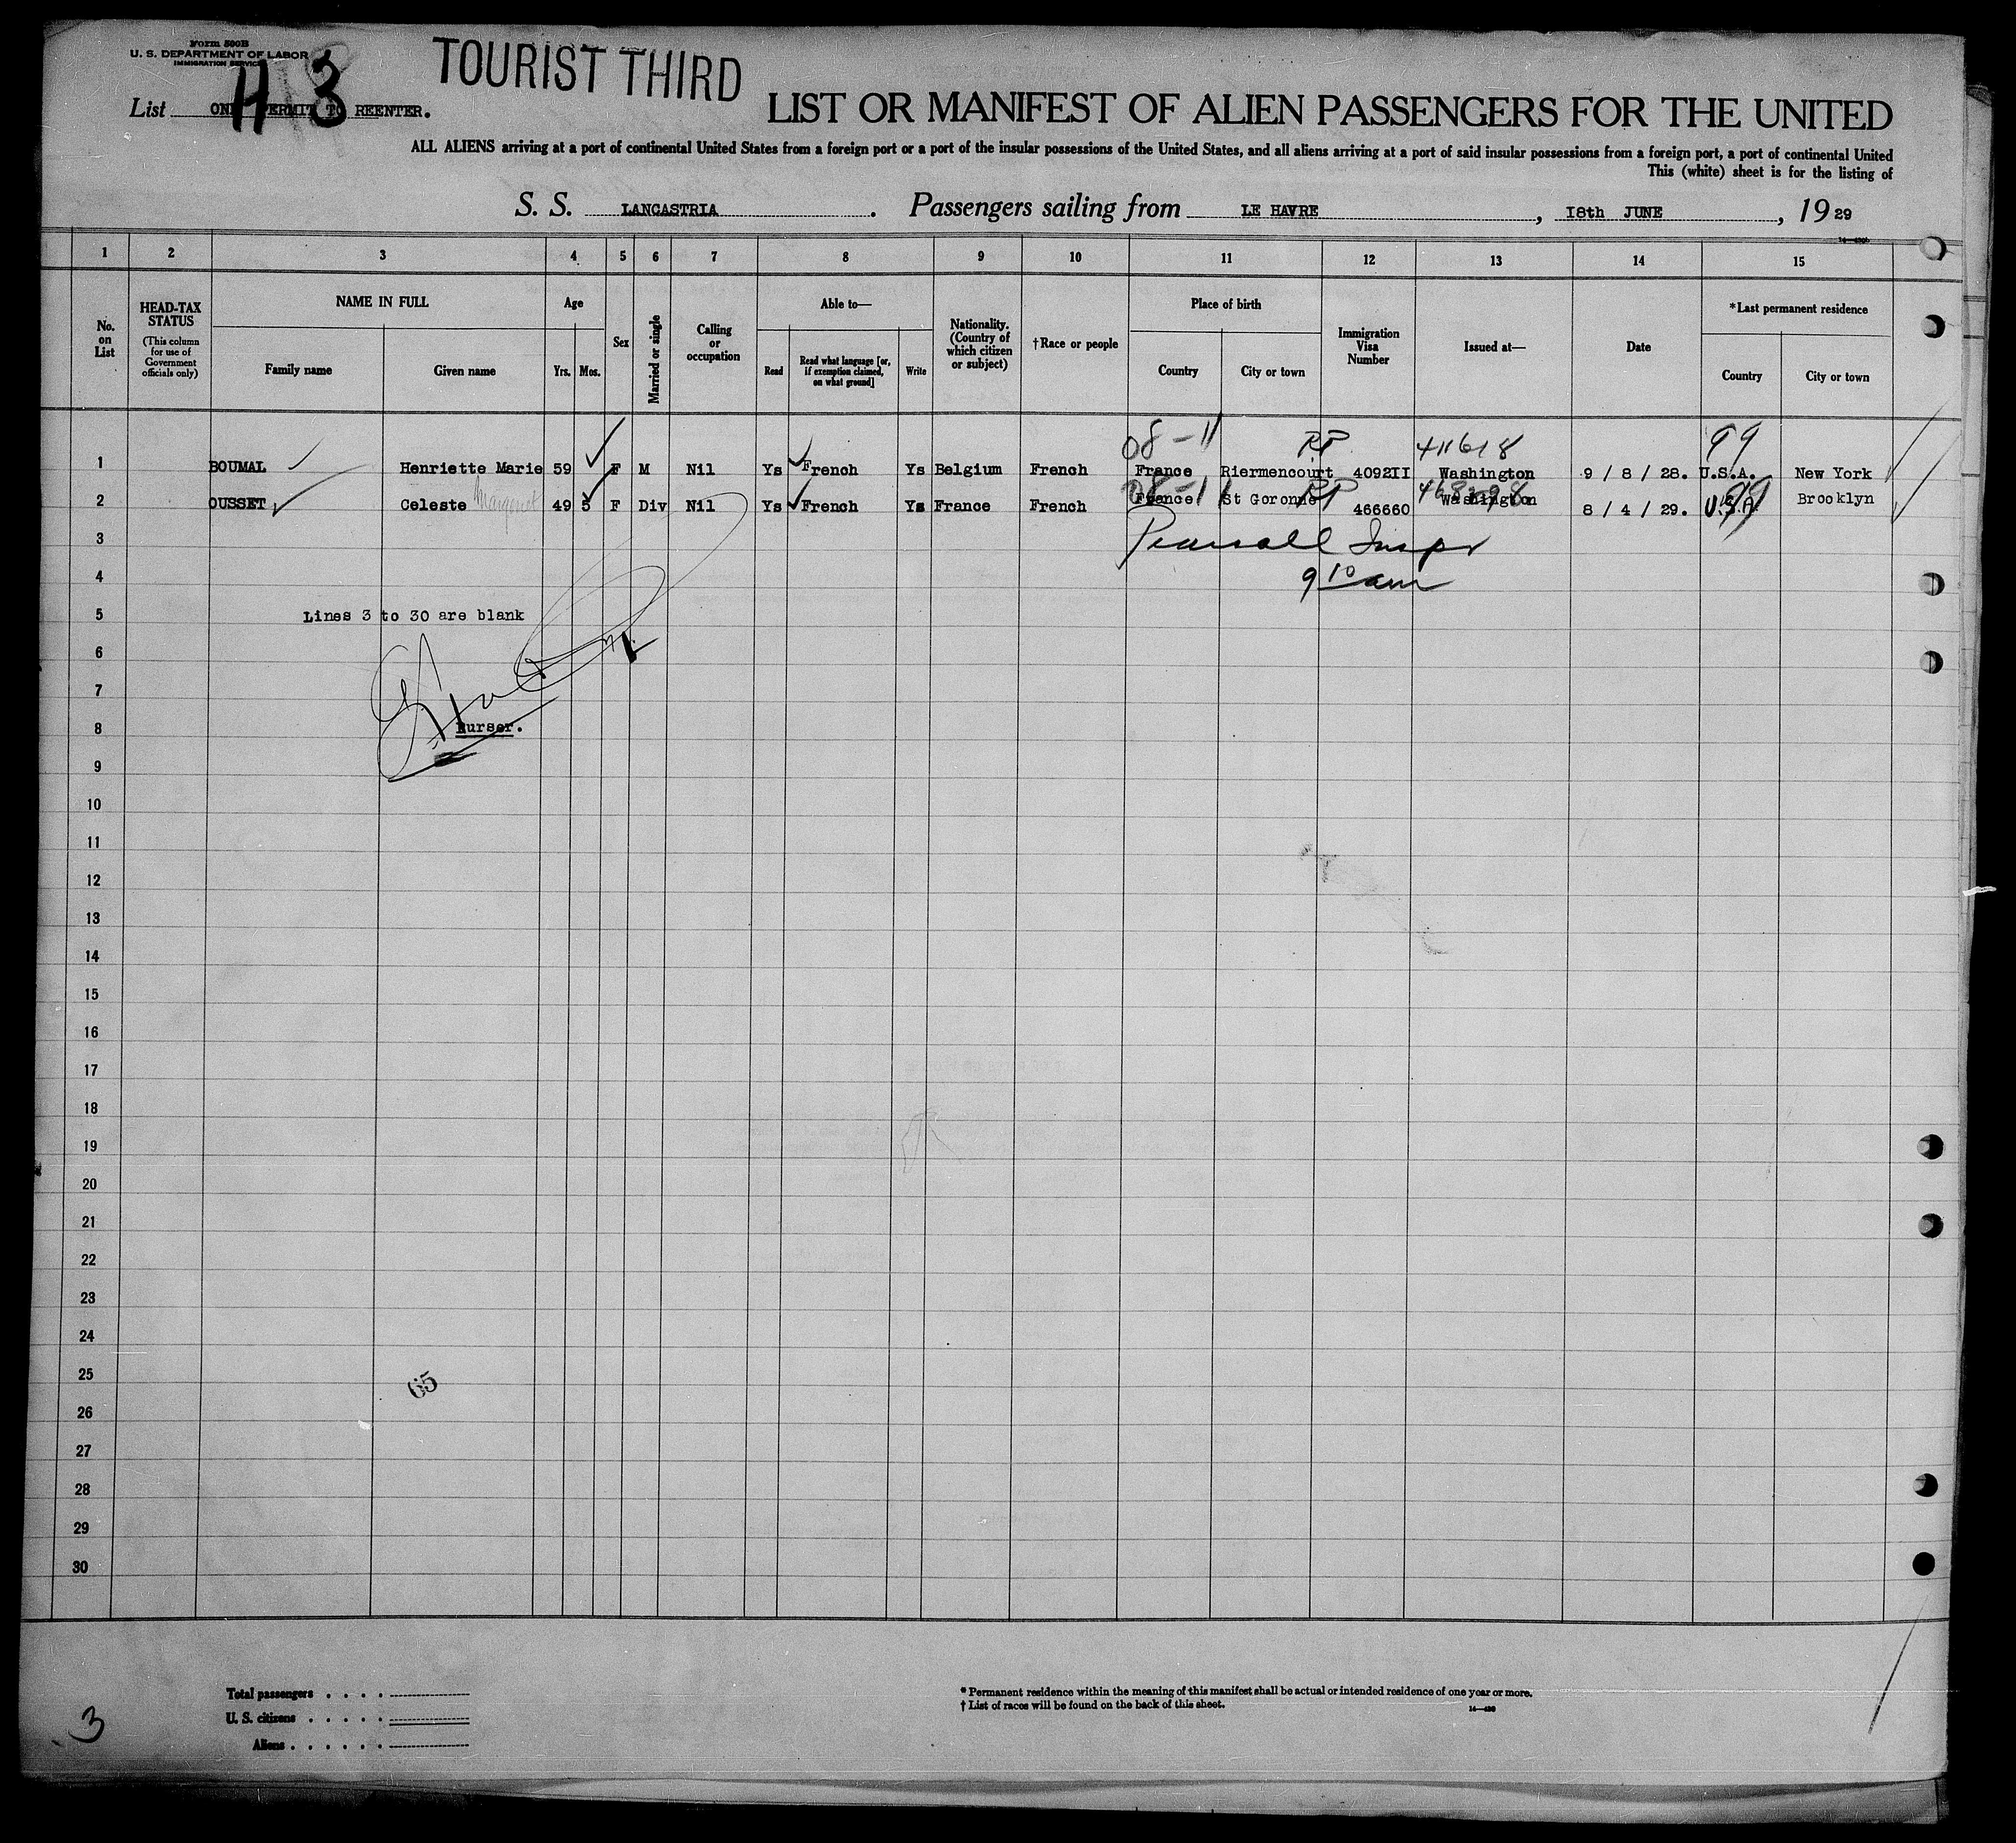 Form 500B
U. S. DEPARTMENT OF LABOR
IMMIGRATION SERVICE
TOURIST THIRD
H 3
List PERMIT TO REENTER.
LIST OR MANIFEST OF ALIEN PASSENGERS FOR THE UNITED
ALL ALIENS arriving at a port of continental United States from a foreign port or a port of the insular possessions of the United States, and all aliens arriving at a port of said insular possessions from a foreign port, a port of continental United
This (white) sheet is for the listing of
S. S. LANCASTRIA . Passengers sailing from LE HAVRE , 18th JUNE , 19 29
1 2 3 4 5 6 7 8 9 10 11 12 13 14 15
No. on List
HEAD-TAX STATUS (This column for use of Government officials only)
NAME IN FULL
Family name Given name
Age
Yrs. Mos.
Sex
Married or single
Calling or occupation
Able to—
Read Read what language [or, if exemption claimed, on what ground] Write
Nationality. (Country of which citizen or subject)
†Race or people
Place of birth
Country City or town
Immigration Visa Number
Issued at—
Date
*Last permanent residence
Country City or town
08-11 RP 411618 99
1 BOUMAL Henriette Marie 59 F M Nil Ys French Ys Belgium French France Riermencourt 4092II Washington 9 / 8 / 28. U.S.A. New York
08-11 RP 99
2 OUSSET Celeste Margaret 49 5 F Div Nil Ys French Ys France French France St Goronne 466660 Washington 8 / 4 / 29. U.S.A. Brooklyn
3 Pearsall Inspr
4 9 10 am
5 Lines 3 to 30 are blank
6
7
8 Purser.
9
10
11
12
13
14
15
16
17
18
19
20
21
22
23
24
25 65
26
27
28
29
30
Total passengers . . . .
U. S. citizens . . . . .
Aliens . . . . . .
* Permanent residence within the meaning of this manifest shall be actual or intended residence of one year or more.
† List of races will be found on the back of this sheet.
3